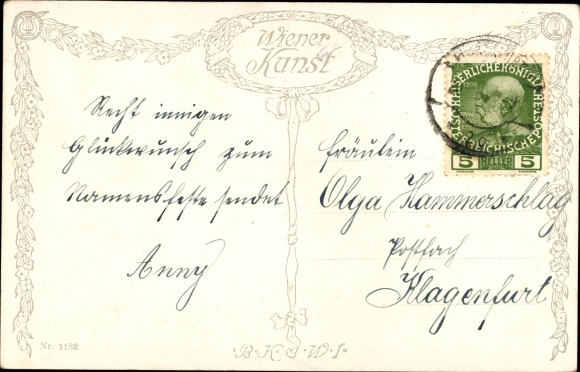 Wiener
Kunst
Recht innigen
Glückwunsch zum
Namensfeste sendet
Anny
Fräulein
Olga Hammerschlag
Postfach
Klagenfurt
KAISERLICHE KÖNIGLICHE ÖSTERREICHISCHE POST
1908
5 HELLER 5
Nr. 1182
B.K.W.I.